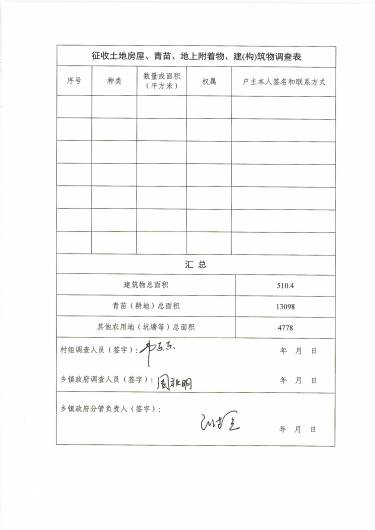 征收土地房屋、青苗、地上附着物、建(构)筑物调查表
序号 种类 数量或面积（平方米） 权属 户主本人签名和联系方式
汇总
建筑物总面积 510.4
青苗（耕地）总面积 13098
其他农用地（坑塘等）总面积 4778
村组调查人员（签字）： 年 月 日
乡镇政府调查人员（签字）： 年 月 日
乡镇政府分管负责人（签字）：
年 月 日